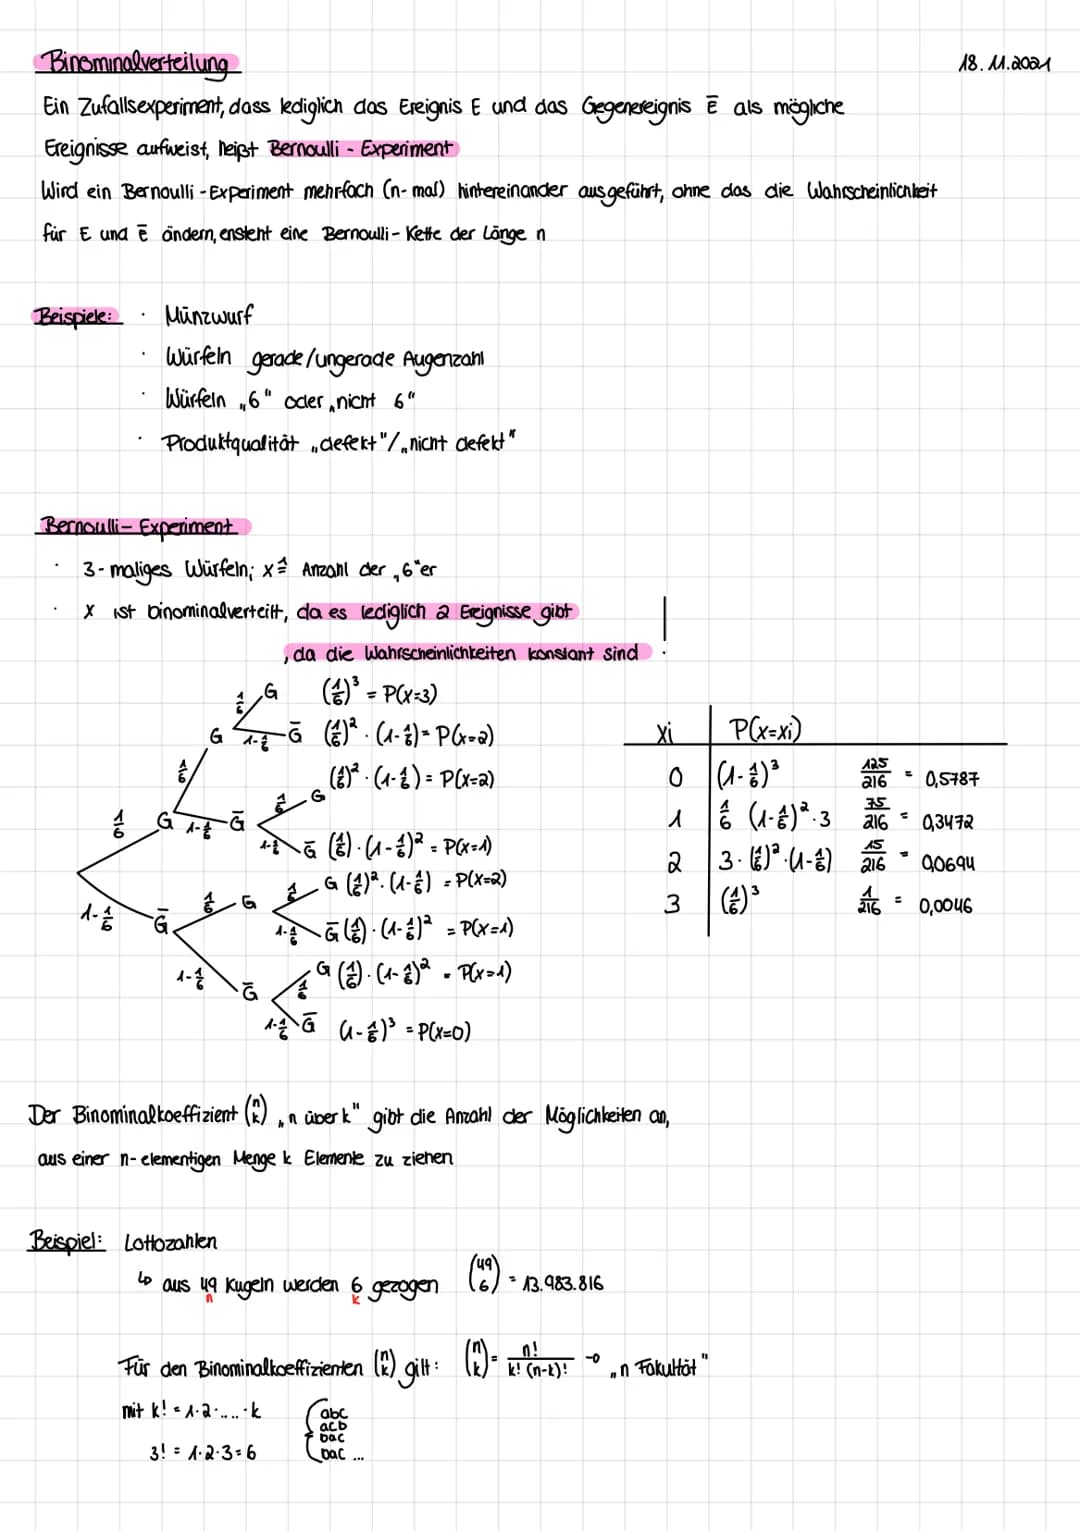 Binominalverteilung
18.11.2021
Ein Zufallsexperiment, dass lediglich das Ereignis E und das Gegenereignis E̅ als mögliche
Ereignisse aufweist, heißt Bernoulli - Experiment
Wird ein Bernoulli - Experiment mehrfach (n-mal) hintereinander ausgeführt, ohne das die Wahrscheinlichkeit
für E und E̅ ändern, ensteht eine Bernoulli - Kette der Länge n
Beispiele: · Münzwurf
· Würfeln gerade/ungerade Augenzahl
· Würfeln „6" oder „nicht 6"
· Produktqualität „defekt"/„nicht defekt"
Bernoulli - Experiment
· 3-maliges Würfeln; x ≙ Anzahl der „6"er
· x ist binominalverteilt, da es lediglich 2 Ereignisse gibt
, da die Wahrscheinlichkeiten konstant sind !
1/6 G (1/6)³ = P(x=3)
G 1-1/6 G̅ (1/6)² · (1-1/6) = P(x=2)
1/6
1/6 G (1/6)² · (1-1/6) = P(x=2)
1/6 G 1-1/6 G̅
1-1/6 G̅ (1/6) · (1-1/6)² = P(x=1)
1/6 G (1/6)² · (1-1/6) = P(x=2)
1-1/6 G̅ 1/6 G
1-1/6 G̅ (1/6) · (1-1/6)² = P(x=1)
1/6 G (1/6) · (1-1/6)² = P(x=1)
1-1/6 G̅
1-1/6 G̅ (1-1/6)³ = P(x=0)
xi P(x=xi)
0 (1-1/6)³ 125/216 = 0,5787
1 1/6 (1-1/6)² · 3 75/216 = 0,3472
2 3 · (1/6)² · (1-1/6) 15/216 = 0,0694
3 (1/6)³ 1/216 = 0,0046
Der Binominalkoeffizient (n k) „n über k" gibt die Anzahl der Möglichkeiten an,
aus einer n-elementigen Menge k Elemente zu ziehen
Beispiel: Lottozahlen
↳ aus 49 Kugeln werden 6 gezogen (49 6) = 13.983.816
n k
Für den Binominalkoeffizienten (n k) gilt: (n k) = n!/k!(n-k)! → „n Fakultät"
mit k! = 1·2·....·k
3! = 1·2·3 = 6
{ abc
acb
bac
bac ...